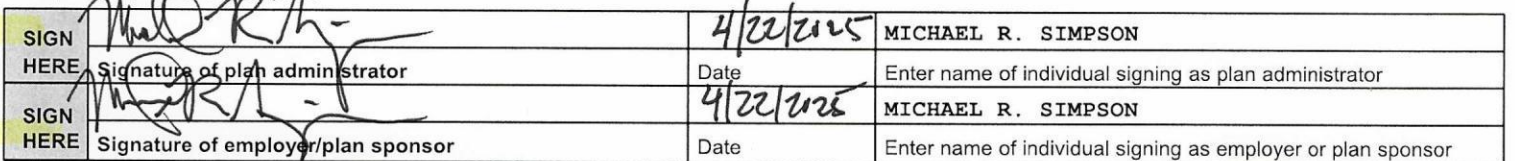 SIGN 4/22/2025 MICHAEL R. SIMPSON
HERE Signature of plan administrator Date Enter name of individual signing as plan administrator
SIGN 4/22/2025 MICHAEL R. SIMPSON
HERE Signature of employer/plan sponsor Date Enter name of individual signing as employer or plan sponsor